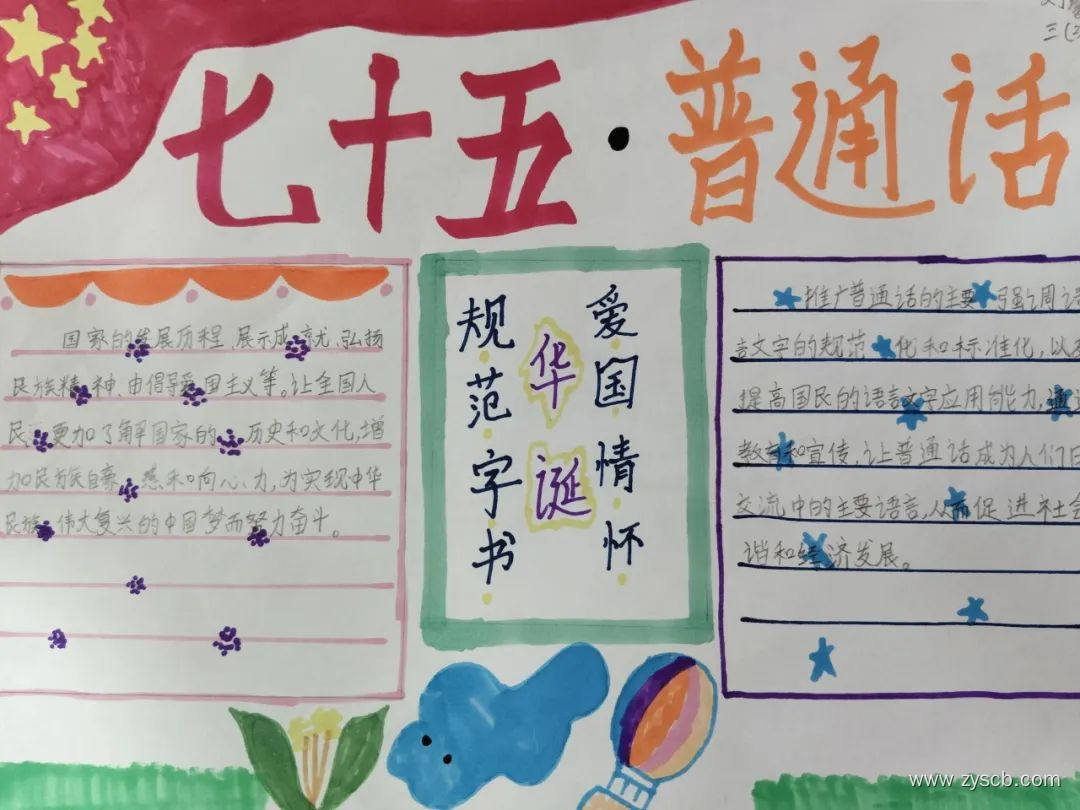 三(2
七十五·普通话
国家的发展历程、展示成就、弘扬
民族精神、由倡导爱国主义等。让全国人
民更加了解国家的历史和文化,增
加民族自豪感和向心力,为实现中华
民族伟大复兴的中国梦而努力奋斗。
爱国情怀
华诞
规范字书
推广普通话的主要 强调语
言文字的规范化和标准化,以
提高国民的语言文字应用能力,通过
教育和宣传,让普通话成为人们日
交流中的主要语言,从而促进社会
谐和经济发展。
www.zyscb.com